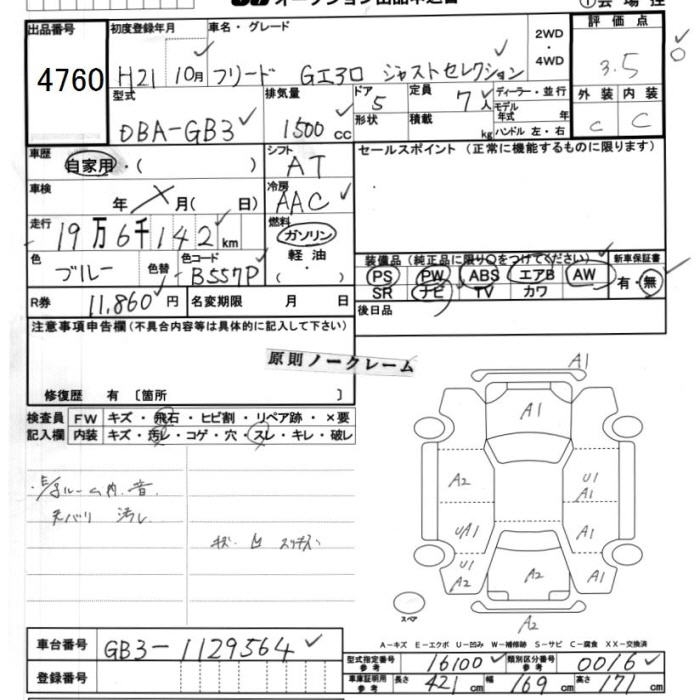 オークション出品申込書
①会場控
出品番号
4760
初度登録年月
H21 10月
車名・グレード
フリード Gエアロ ジャストセレクション
2WD・4WD
評価点
3.5
外装 内装
C C
型式
DBA-GB3
排気量
1500 cc
ドア
5
形状
定員
7人
積載 kg
ディーラー・並行
モデル年式 年式
ハンドル 左・右
車歴
自家用・( )
シフト
AT
セールスポイント (正常に機能するものに限ります)
車検
年 月( 日)
冷房
AAC
走行
19万6千142km
燃料
ガソリン
軽油
( )
色
ブルー
色替
色コード
B557P
装備品(純正品に限り○をつけてください)
PS PW ABS エアB AW
SR ナビ TV カワ
新車保証書
有・無
R券
11,860円
名変期限 月 日
後日品
注意事項申告欄(不具合内容等は具体的に記入して下さい)
原則ノークレーム
修復歴 有 〔箇所 〕
検査員記入欄
FW キズ・飛石・ヒビ割・リペア跡・×要
内装 キズ・汚レ・コゲ・穴・スレ・キレ・破レ
汚レ
キズ 凹
A1
A1
A2
U1
A1
A1
U1
A2
A2
A1
A2
スペア
A-キズ E-エクボ U-凹み W-補修跡 S-サビ C-腐食 XX-交換済
車台番号
GB3-1129564
登録番号
型式指定番号 参考
16100
類別区分番号 参考
0016
車庫証明用 参考
長さ 421cm 幅 169cm 高さ 171cm